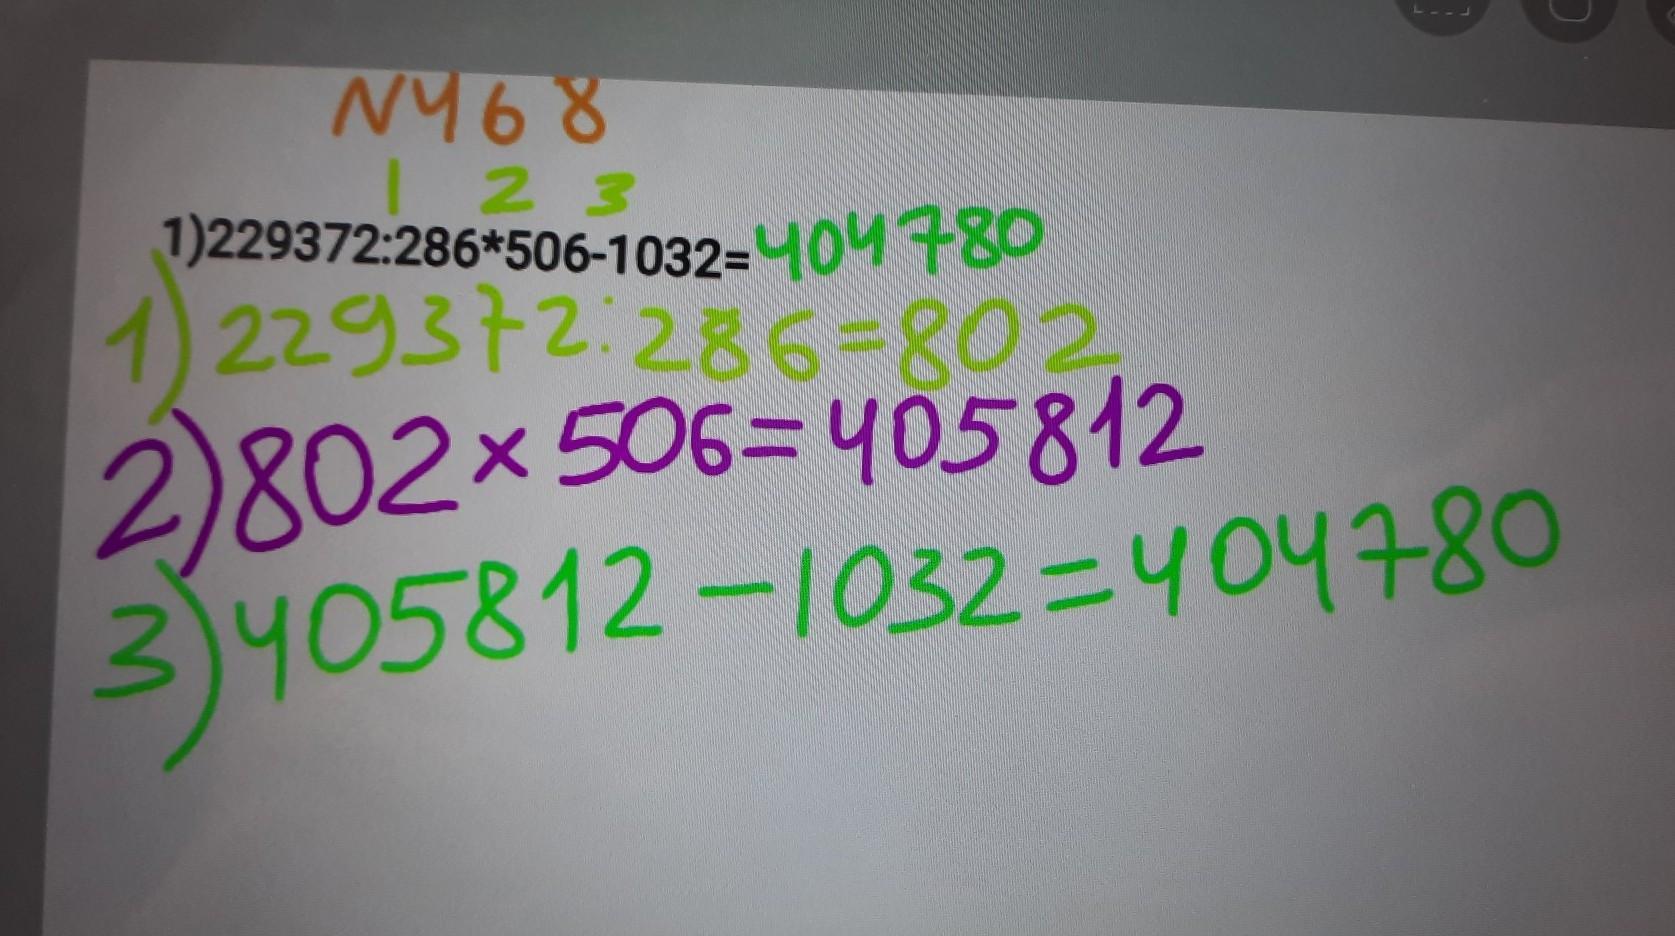 N468
1 2 3
1)229372:286*506-1032=404780
1)229372:286=802
2)802×506=405812
3)405812-1032=404780